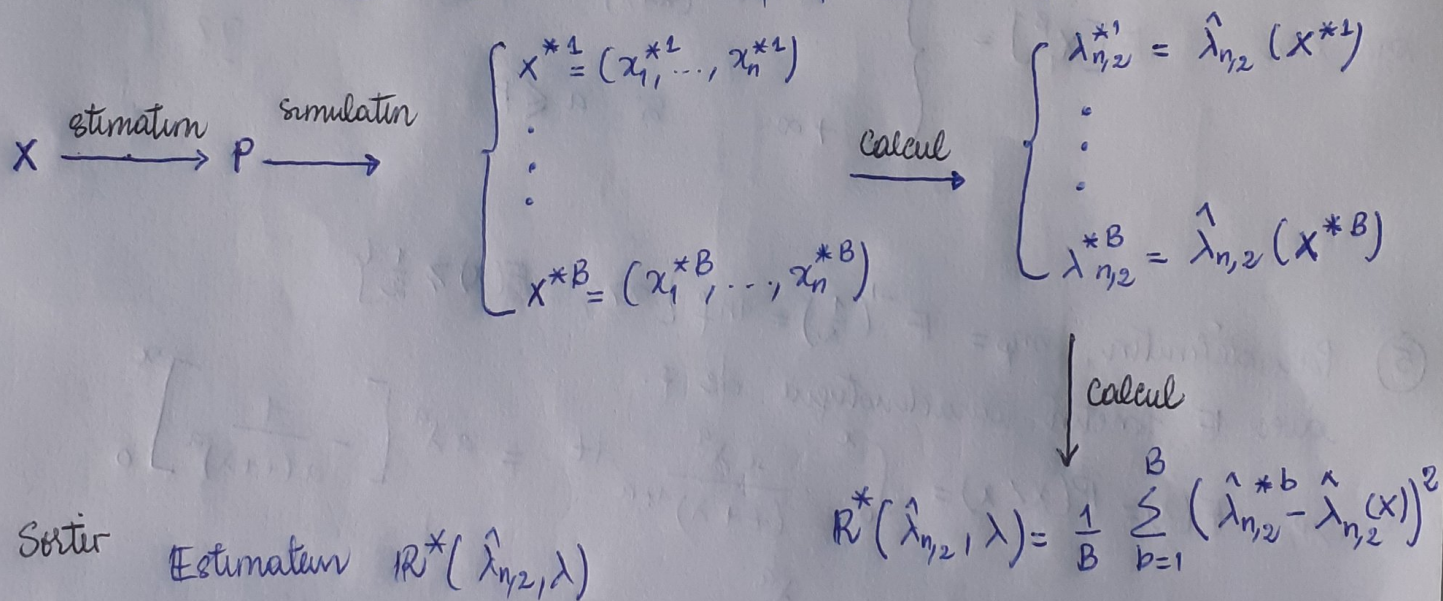 X estimation → P simulation →
{ X^{*1} = (x_1^{*1}, ..., x_n^{*1})
.
.
.
X^{*B} = (x_1^{*B}, ..., x_n^{*B})
calcul →
{ λ_{n,2}^{*1} = λ̂_{n,2} (X^{*1})
.
.
.
λ_{n,2}^{*B} = λ̂_{n,2} (X^{*B})
↓ calcul
R^*(λ̂_{n,2}, λ) = \frac{1}{B} \sum_{b=1}^{B} (λ̂_{n,2}^{*b} - λ̂_{n,2}(X))^2
Sortir Estimateur R^*(λ̂_{n,2}, λ)